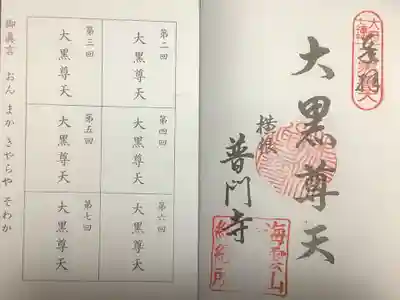 奉拝
大黒尊天
横根
普門寺
海雲山
第二回
大黒尊天
第三回
大黒尊天
第四回
大黒尊天
第五回
大黒尊天
第六回
大黒尊天
第七回
大黒尊天
御真言 おん まか きゃらや そわか